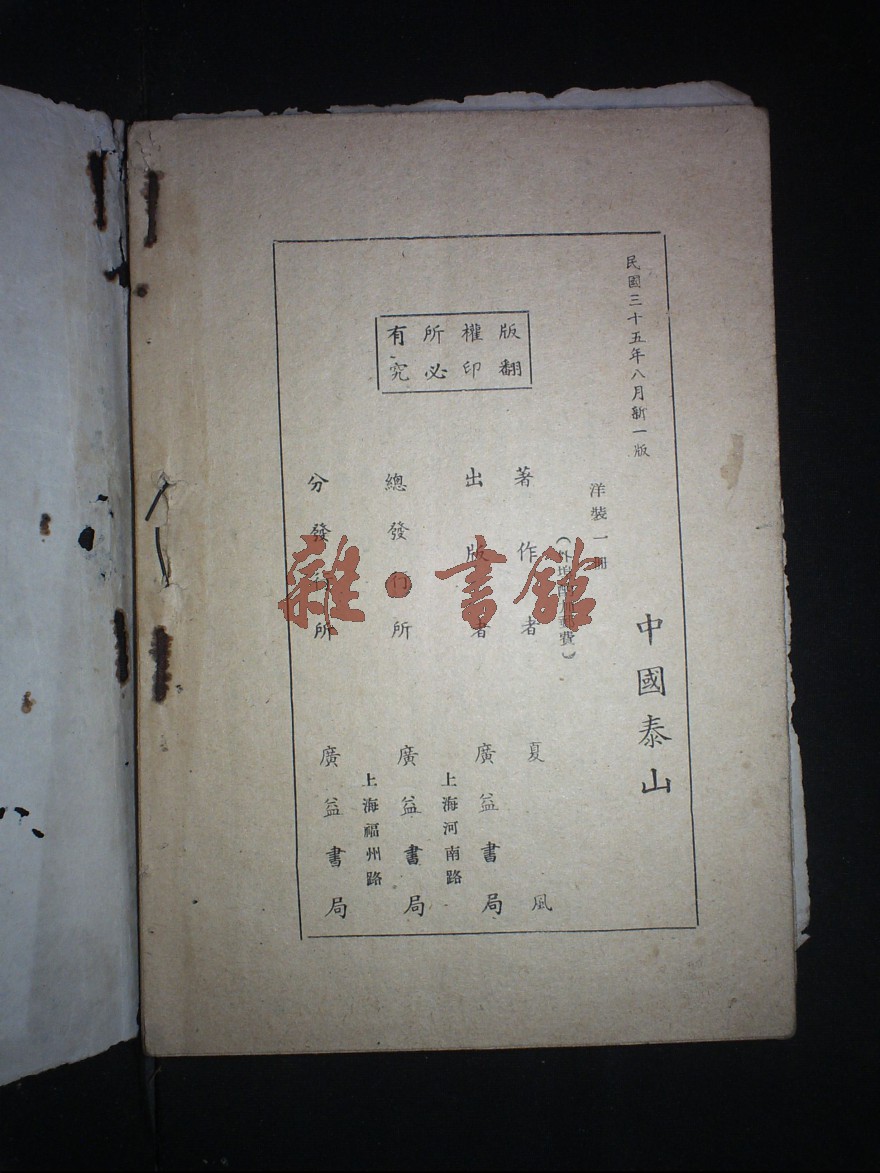 民國三十五年八月新一版
中國泰山
洋裝一冊
(外埠酌加郵費)
版權所有
翻印必究
著作者 夏風
出版者 廣益書局
上海河南路
總發行所 廣益書局
上海福州路
分發行所 廣益書局
雜·書館